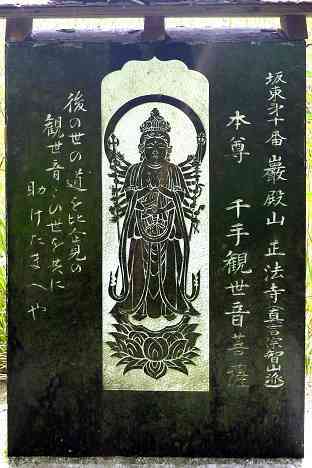 坂東第十番 巌殿山 正法寺 真言宗智山派
本尊 千手観世音菩薩
後の世の道を比企見の
観世音この世を共に
助けたまへや